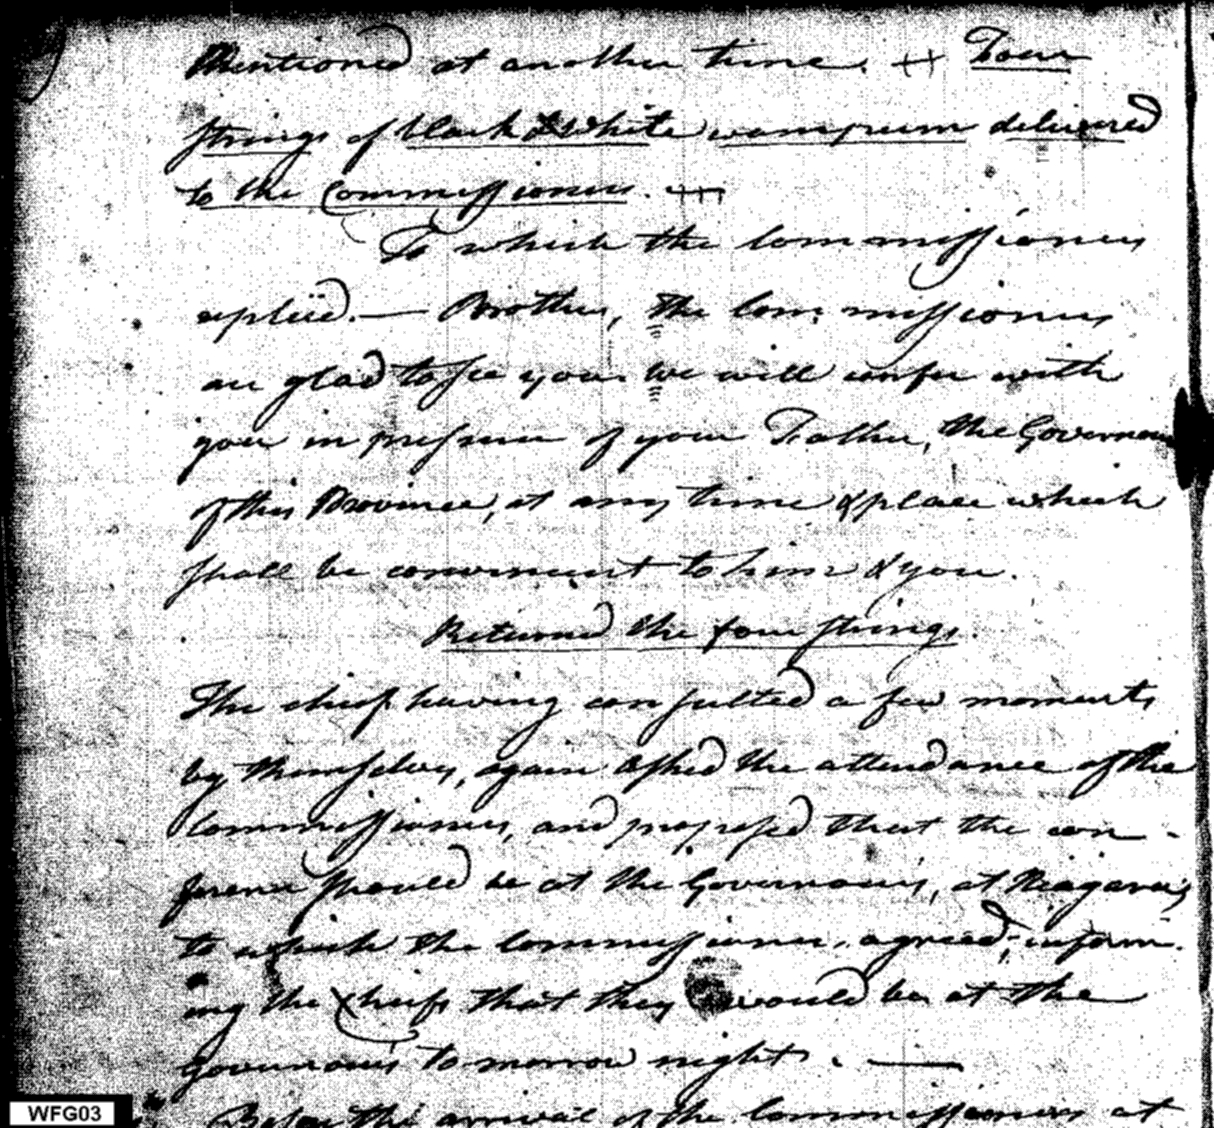 Mentioned at another time. ++ Four
strings of black & white wampum delivered
to the Commissioners. +++
To which the Commissioners
replied. — Brothers, the Commissioners
are glad to see you. We will confer with
you in presence of your Father, the Governour
of this Province, at any time & place which
shall be convenient to him & you.
Returned the four strings.
The chiefs having consulted a few moments
by themselves, again asked the attendance of the
Commissioners, and proposed that the con-
ference should be at the Governour's, at Niagara;
to which the Commissioners agreed; inform-
ing the Chiefs that they would be at the
governour's tomorrow night. —
Before the arrival of the Commissioners at
WFG03